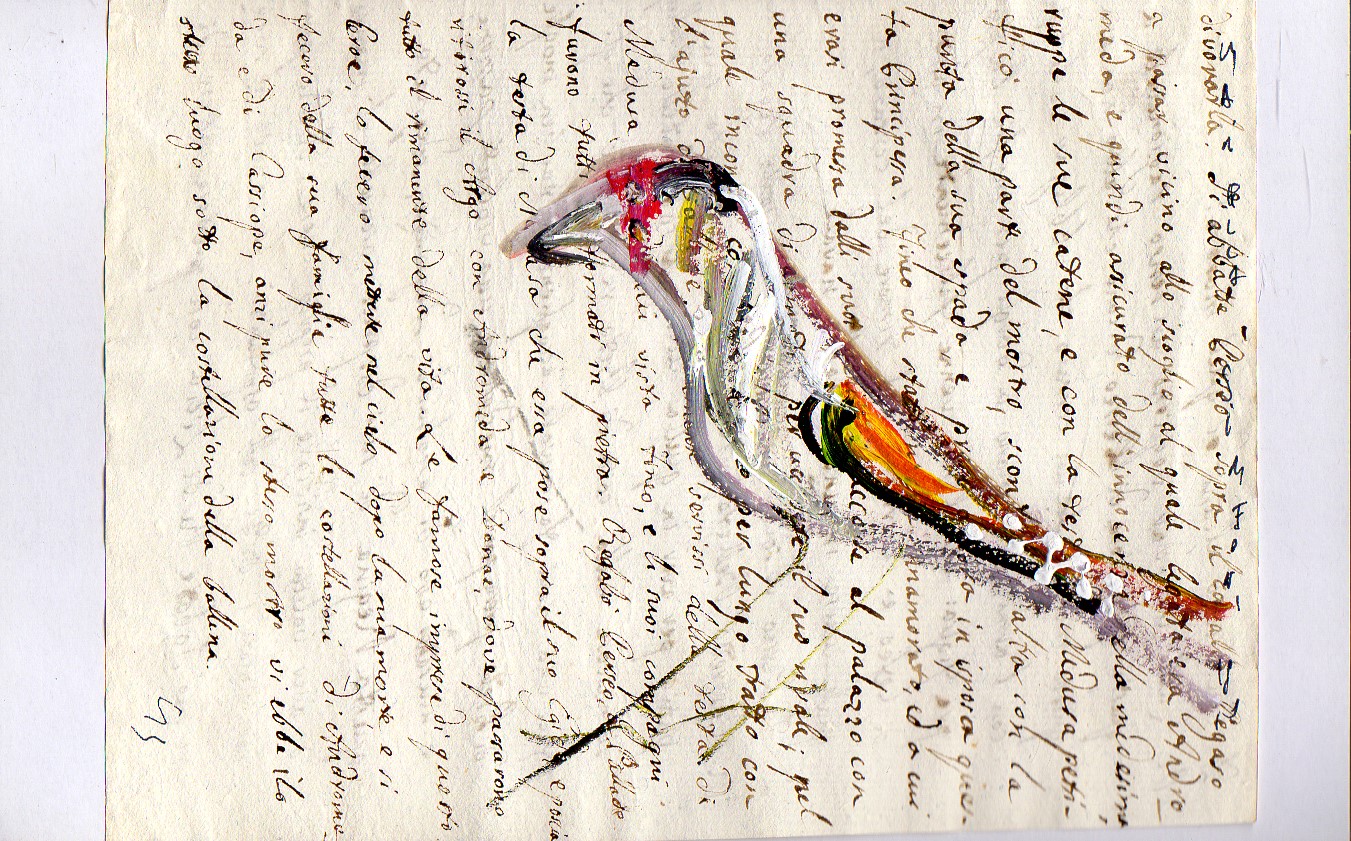 divorarla. Si abbattè Perseo sopra il Pegaso
a passar vicino allo scoglio al quale era Andro=
meda, e quindi assicurato dell'innocen della medesima,
ruppe le sue catene, e con la Medusa petri=
ficò una parte del mostro, altra con la
punta della sua spada e in isposa ques=
ta Principessa. Fineo che namorato, à cui
erasi promessa dalli suoi al palazzo con
una squadra di il suo rivale; nel
quale incon per lungo tratto con
l'ajuto servissi della testa di
Medusa vista Fineo, e li suoi compagni
furono tutti formati in pietra. Regalò Perseo a Pallade
la testa di che essa pose sopra il suo Egide e poscia
ritirossi il Argo con Andromeda e Danae, dove passarono
tutto il rimanente della vita. Le famose imprese di questo
Eroe, lo fecero mettere nel cielo dopo la sua morte, e vi
fecero della sua famiglia tutte le costellazioni di Androme=
da e di Cassiope, anzi pure lo stesso mostro vi ebbe il
stesso luogo sotto la costellazione della balena.